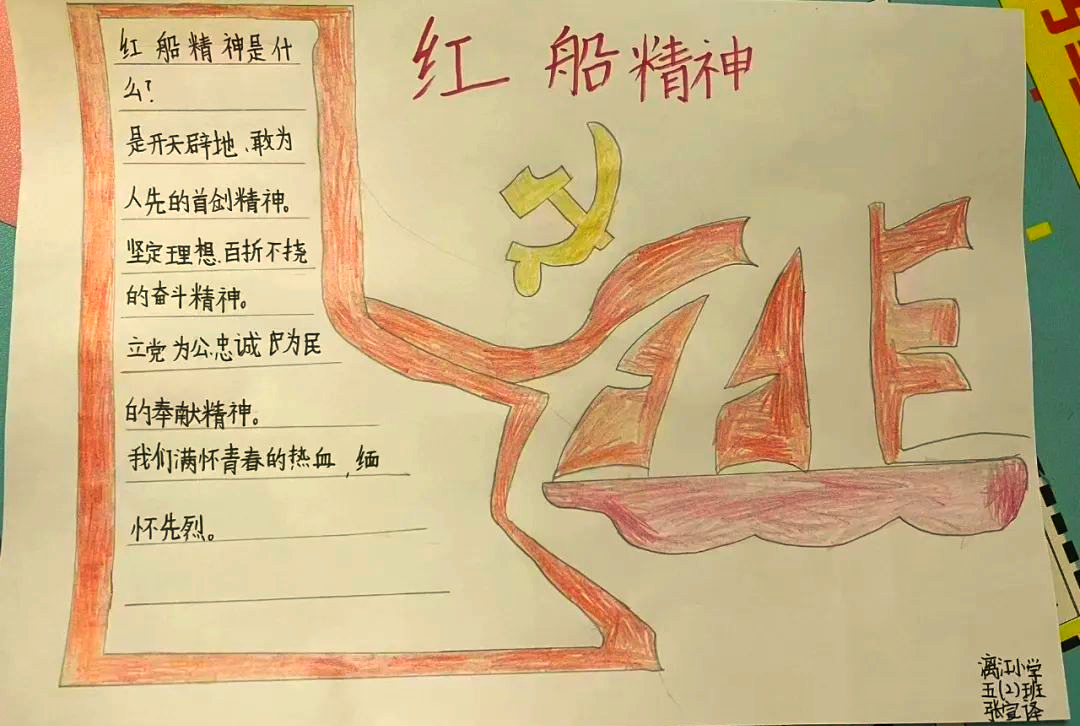 红船精神
红船精神是什
么？
是开天辟地、敢为
人先的首创精神。
坚定理想、百折不挠
的奋斗精神。
立党为公、忠诚为民
的奉献精神。
我们满怀青春的热血，缅
怀先烈。
漓江小学
五(2)班
张宣译